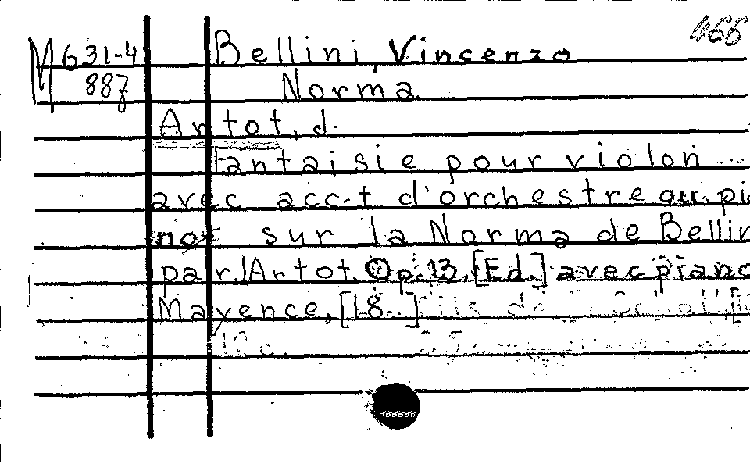 466
M 631-4 Bellini, Vincenzo
887 Norma
Artot, J.
Fantaisie pour violon ...
avec acc-t d'orchestre ou pi
no sur la Norma de Bellin
par J Artot Op. 13. [Ed.] avec piano
Mayence, [18..] fils de